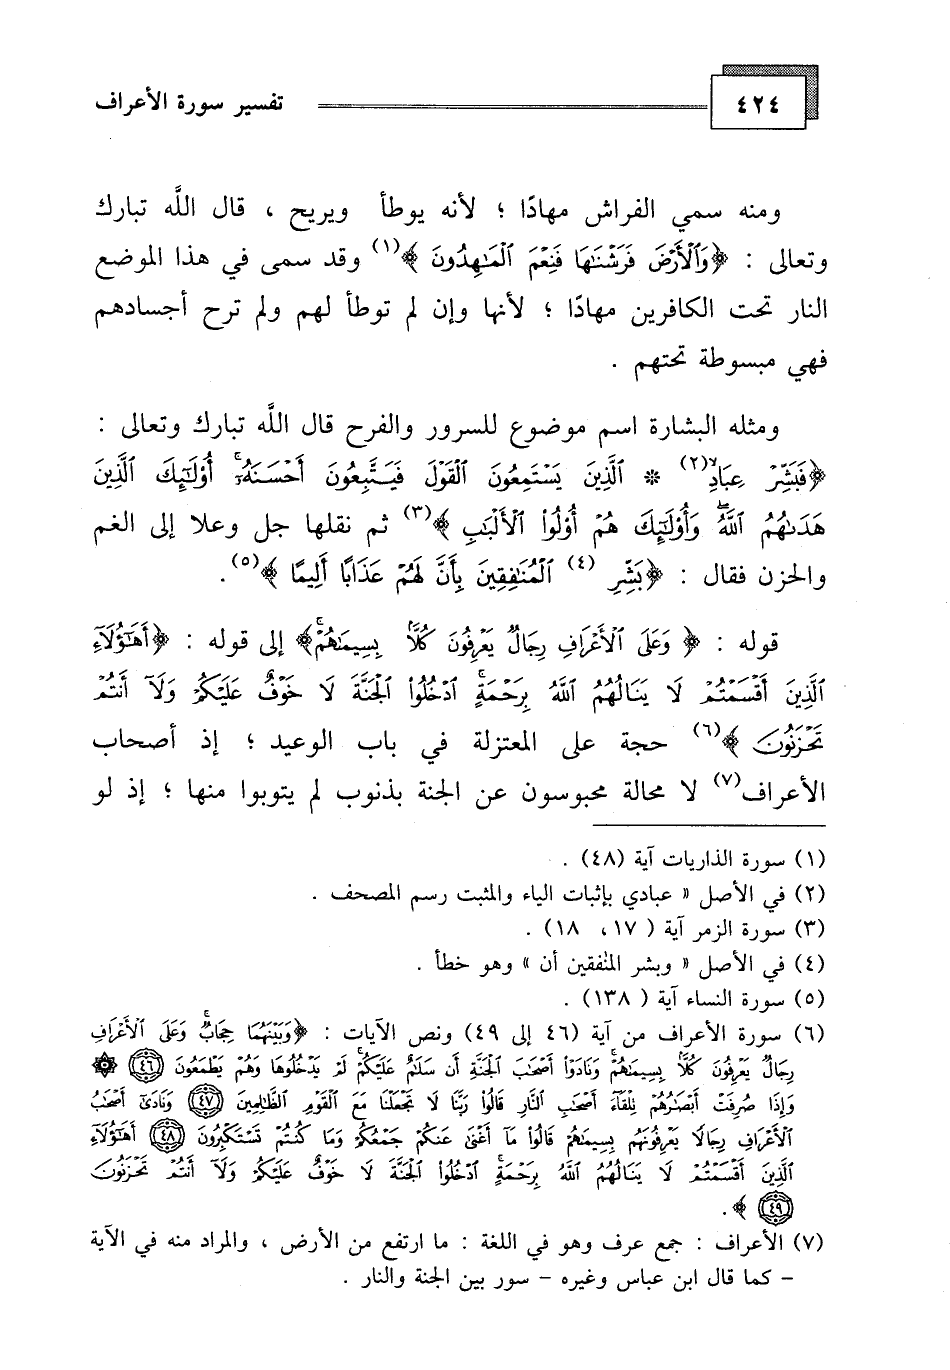 ٤٢٤ تفسير سورة الأعراف
ومنه سمي الفراش مهادًا ؛ لأنه يوطأ ويريح ، قال اللَّه تبارك
وتعالى : ﴿وَٱلْأَرْضَ فَرَشْنَٰهَا فَنِعْمَ ٱلْمَٰهِدُونَ ﴾(١) وقد سمى في هذا الموضع
النار تحت الكافرين مهادًا ؛ لأنها وإن لم توطأ لهم ولم ترح أجسادهم
فهي مبسوطة تحتهم .
ومثله البشارة اسم موضوع للسرور والفرح قال اللَّه تبارك وتعالى :
﴿فَبَشِّرْ عِبَادِ(٢) * ٱلَّذِينَ يَسْتَمِعُونَ ٱلْقَوْلَ فَيَتَّبِعُونَ أَحْسَنَهُۥٓ أُوْلَٰٓئِكَ ٱلَّذِينَ
هَدَىٰهُمُ ٱللَّهُ وَأُوْلَٰٓئِكَ هُمْ أُوْلُواْ ٱلْأَلْبَٰبِ ﴾(٣) ثم نقلها جل وعلا إلى الغم
والحزن فقال : ﴿بَشِّرِ (٤) ٱلْمُنَٰفِقِينَ بِأَنَّ لَهُمْ عَذَابًا أَلِيمًا ﴾(٥).
قوله : ﴿ وَعَلَى ٱلْأَعْرَافِ رِجَالٌ يَعْرِفُونَ كُلًّۢا بِسِيمَىٰهُمْ﴾ إلى قوله : ﴿أَهَٰٓؤُلَآءِ
ٱلَّذِينَ أَقْسَمْتُمْ لَا يَنَالُهُمُ ٱللَّهُ بِرَحْمَةٍ ٱدْخُلُواْ ٱلْجَنَّةَ لَا خَوْفٌ عَلَيْكُمْ وَلَآ أَنتُمْ
تَحْزَنُونَ ﴾(٦) حجة على المعتزلة في باب الوعيد ؛ إذ أصحاب
الأعراف(٧) لا محالة محبوسون عن الجنة بذنوب لم يتوبوا منها ؛ إذ لو
(١) سورة الذاريات آية (٤٨) .
(٢) في الأصل « عبادي بإثبات الياء والمثبت رسم المصحف .
(٣) سورة الزمر آية ( ١٧ ، ١٨ ) .
(٤) في الأصل « وبشر المنٰفقين أن » وهو خطأ .
(٥) سورة النساء آية ( ١٣٨ ) .
(٦) سورة الأعراف من آية (٤٦ إلى ٤٩) ونص الآيات : ﴿وَبَيْنَهُمَا حِجَابٌ وَعَلَى ٱلْأَعْرَافِ
رِجَالٌ يَعْرِفُونَ كُلًّۢا بِسِيمَىٰهُمْ وَنَادَوْاْ أَصْحَٰبَ ٱلْجَنَّةِ أَن سَلَٰمٌ عَلَيْكُمْ لَمْ يَدْخُلُوهَا وَهُمْ يَطْمَعُونَ ٤٦ ۞
وَإِذَا صُرِفَتْ أَبْصَٰرُهُمْ تِلْقَآءَ أَصْحَٰبِ ٱلنَّارِ قَالُواْ رَبَّنَا لَا تَجْعَلْنَا مَعَ ٱلْقَوْمِ ٱلظَّٰلِمِينَ ٤٧ وَنَادَىٰٓ أَصْحَٰبُ
ٱلْأَعْرَافِ رِجَالًا يَعْرِفُونَهُم بِسِيمَىٰهُمْ قَالُواْ مَآ أَغْنَىٰ عَنكُمْ جَمْعُكُمْ وَمَا كُنتُمْ تَسْتَكْبِرُونَ ٤٨ أَهَٰٓؤُلَآءِ
ٱلَّذِينَ أَقْسَمْتُمْ لَا يَنَالُهُمُ ٱللَّهُ بِرَحْمَةٍ ٱدْخُلُواْ ٱلْجَنَّةَ لَا خَوْفٌ عَلَيْكُمْ وَلَآ أَنتُمْ تَحْزَنُونَ
٤٩ ﴾ .
(٧) الأعراف : جمع عرف وهو في اللغة : ما ارتفع من الأرض ، والمراد منه في الآية
– كما قال ابن عباس وغيره – سور بين الجنة والنار .